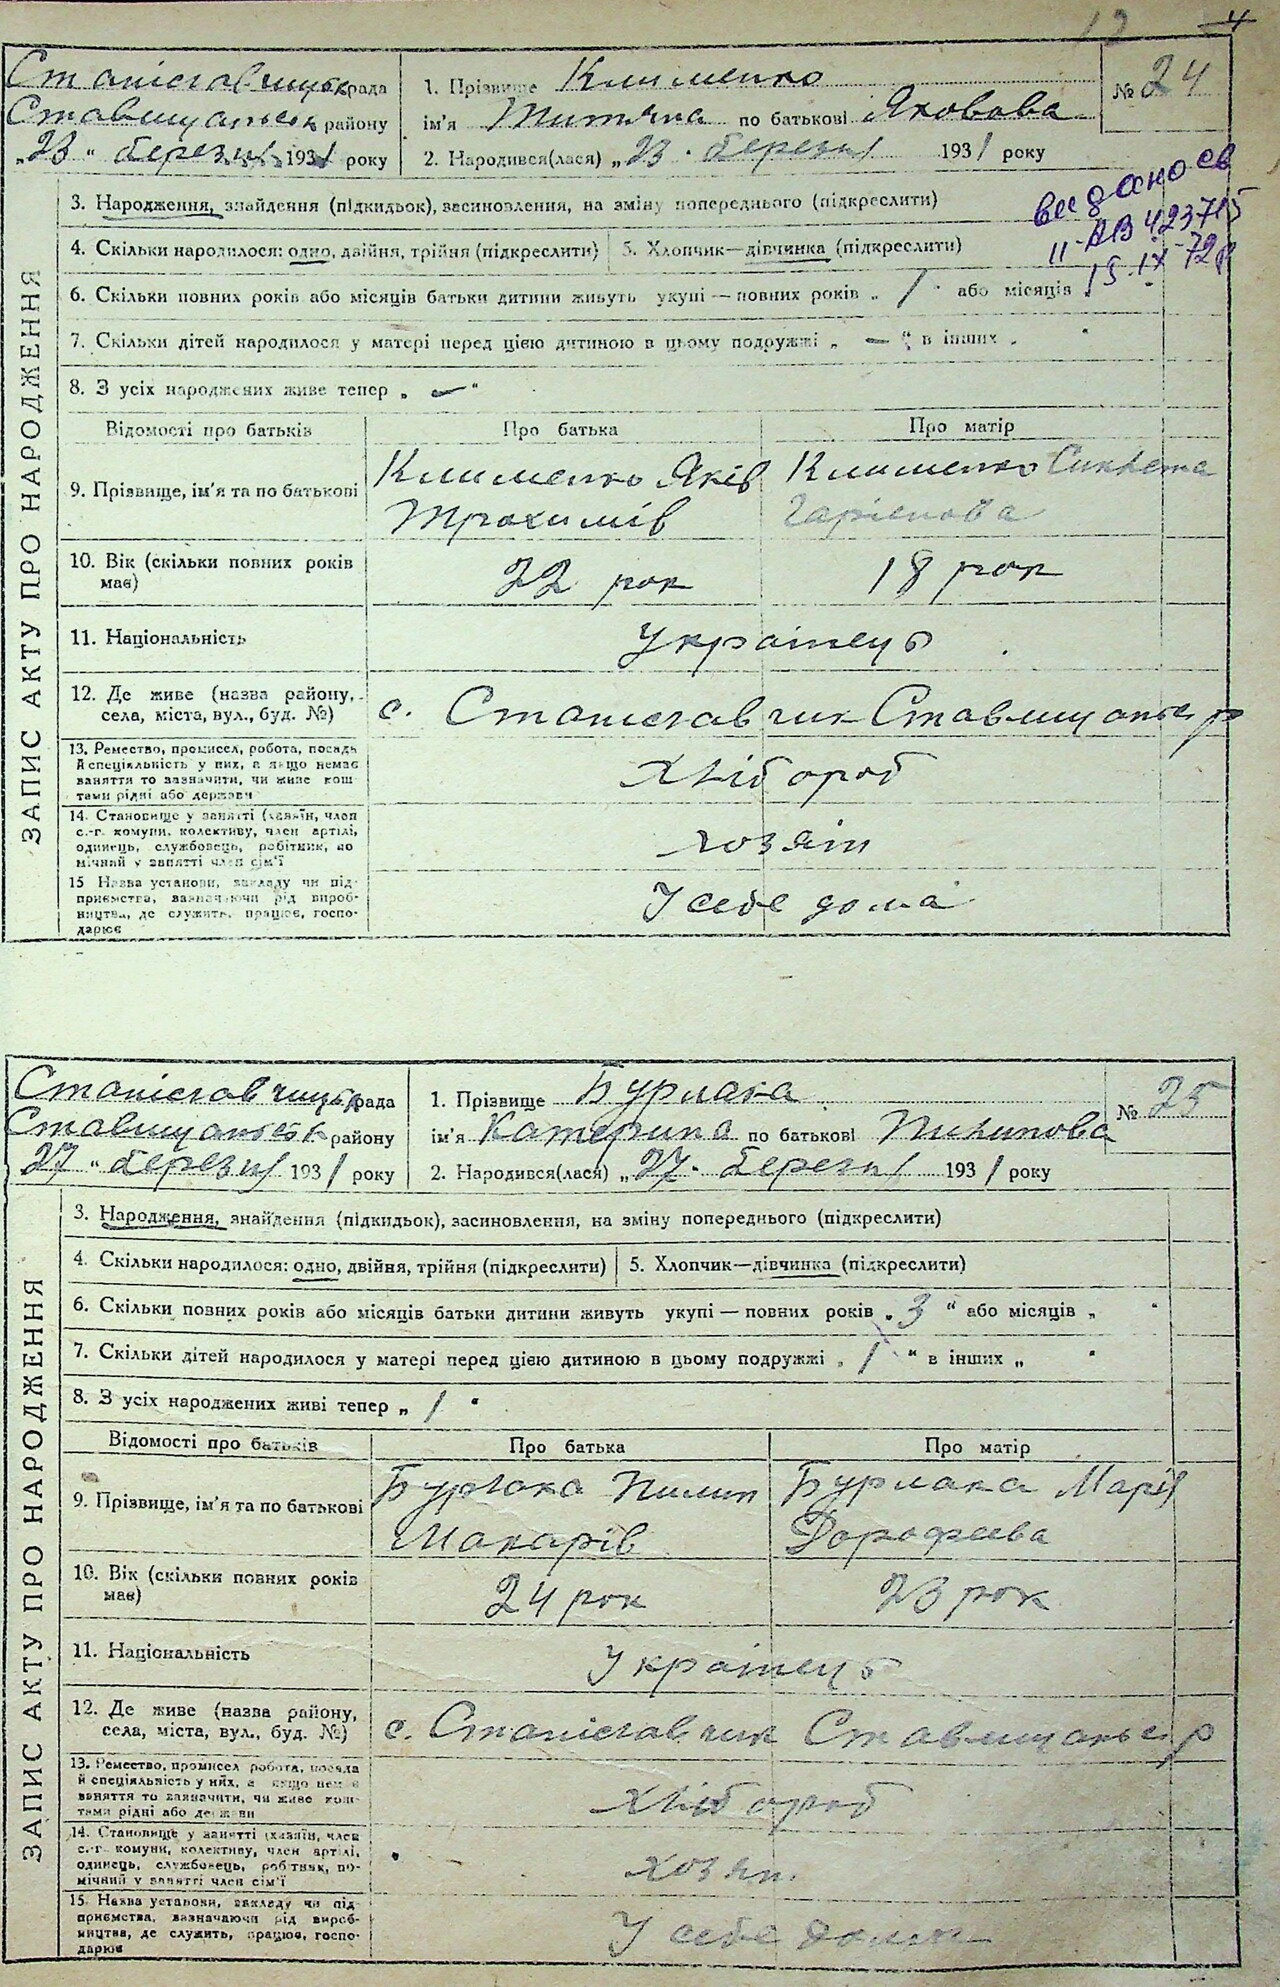 4
Станіславчицька рада
Ставищанськ району
„23“ березня 1931 року
1. Прізвище Клименко
ім'я Титяна по батькові Яковова
2. Народився(лася) „23“ березня 1931 року
№ 24
видано св
II-АВ 423715
15-IX-72р
ЗАПИС АКТУ ПРО НАРОДЖЕННЯ
3. Народження, знайдення (підкидьок), засиновлення, на зміну попереднього (підкреслити)
4. Скільки народилося: одно, двійня, трійня (підкреслити) 5. Хлопчик—дівчинка (підкреслити)
6. Скільки повних років або місяців батьки дитини живуть укупі — повних років „ 1 “ або місяців „
7. Скільки дітей народилося у матері перед цією дитиною в цьому подружжі „ — “ в інших „ “
8. З усіх народжених живе тепер „ — “
Відомості про батьків Про батька Про матір
9. Прізвище, ім'я та по батькові
Клименко Яків Клименко
Трохимів
10. Вік (скільки повних років
має)
22 рок 18 рок
11. Національність Українець
12. Де живе (назва району,
села, міста, вул., буд. №)
с. Станіславчик Ставищанськ р
13. Ремество, промисел, робота, посада
й спеціяльність у них, а якщо немає
заняття то зазначити, чи живе кош-
тами рідні або держави
Хлібороб
14. Становище у занятті (хазяїн, член
с.-г. комуни, колективу, член артілі,
одинець, службовець, робітник, по
мічний у занятті член сім'ї
хозяїн
15 Назва установи, закладу чи під-
приємства, зазначаючи рід вироб-
ництва, де служить, працює, госпо-
дарює
У себе дома
Станіславчицька рада
Ставищанськ району
27 “ березня 1931 року
1. Прізвище Бурлака
ім'я Катерина по батькові Пилипова
2. Народився(лася) „27“ березня 1931 року
№ 25
ЗАПИС АКТУ ПРО НАРОДЖЕННЯ
3. Народження, знайдення (підкидьок), засиновлення, на зміну попереднього (підкреслити)
4. Скільки народилося: одно, двійня, трійня (підкреслити) 5. Хлопчик—дівчинка (підкреслити)
6. Скільки повних років або місяців батьки дитини живуть укупі — повних років „ 3 “ або місяців „ “
7. Скільки дітей народилося у матері перед цією дитиною в цьому подружжі „ 1 “ в інших „ “
8. З усіх народжених живі тепер „ 1 “
Відомості про батьків Про батька Про матір
9. Прізвище, ім'я та по батькові
Бурлака Пилип Бурлака Марія
Макарів Дорофеева
10. Вік (скільки повних років
має)
24 рок 23 рок
11. Національність Українець
12. Де живе (назва району,
села, міста, вул., буд. №)
с. Станіславчик Ставищанськ р
13. Ремество, промисел робота, посада
й спеціяльність у них, а якщо немає
заняття то зазначити, чи живе кош-
тами рідні або держави
Хлібороб
14. Становище у занятті (хазяїн, член
с.-г. комуни, колективу, член артілі,
одинець, службовець, робітник, по-
мічний у занятті член сім'ї
хозяїн.
15. Назва установи, закладу чи під-
приємства, зазначаючи рід вироб-
ництва, де служить, працює, госпо-
дарює
У себе дома